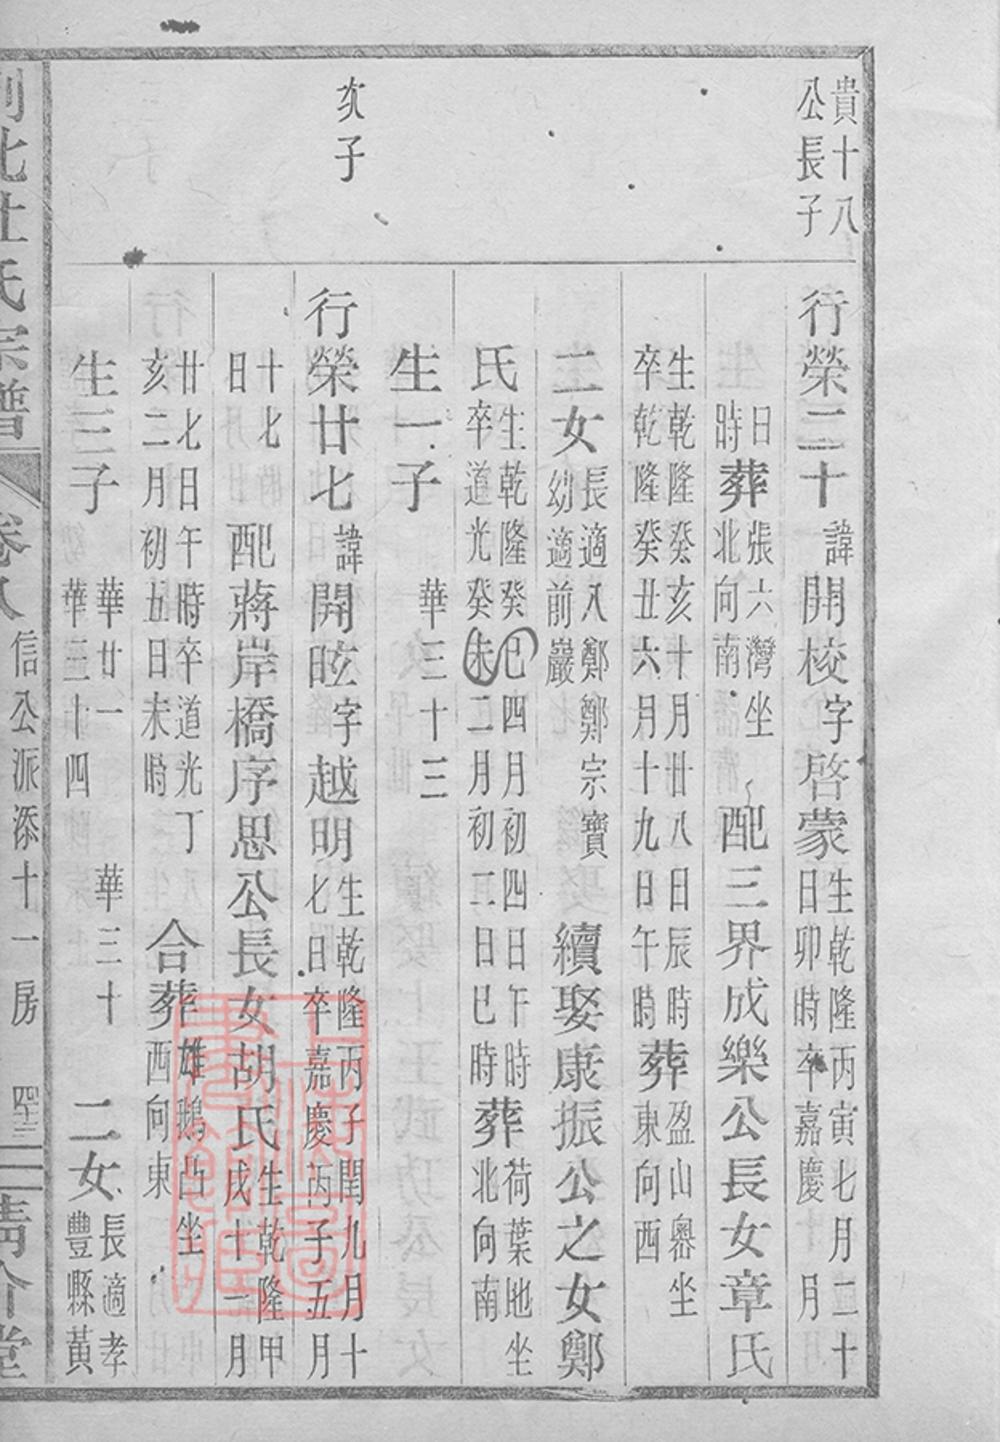 貴十八
公長子
行榮二十諱開校字啓蒙生乾隆丙寅七月二十
日卯時卒嘉慶 月
日
時葬張六灣坐
北向南配三界成樂公長女章氏
生乾隆癸亥十月廿八日辰時
卒乾隆癸丑六月十九日午時葬盈山嶴坐
東向西
二女長適八鄭鄭宗寶
幼適前巖續娶康振公之女鄭
氏生乾隆癸巳四月初四日午時
卒道光癸未二月初二日巳時葬荷葉地坐
北向南
生一子華三十三
次子
行榮廿七諱開昡字越明生乾隆丙子閏九月十
七日卒嘉慶丙子五月
十七
日配蔣岸橋序思公長女胡氏生乾隆甲
戌十一月
廿七日午時卒道光丁
亥二月初五日未時合葬雄鵝凸坐
西向東
生三子華廿一 華三十
華三十四二女長適孝
豐縣黃
北杜氏宗譜
卷八
信公派添十一房
清介堂